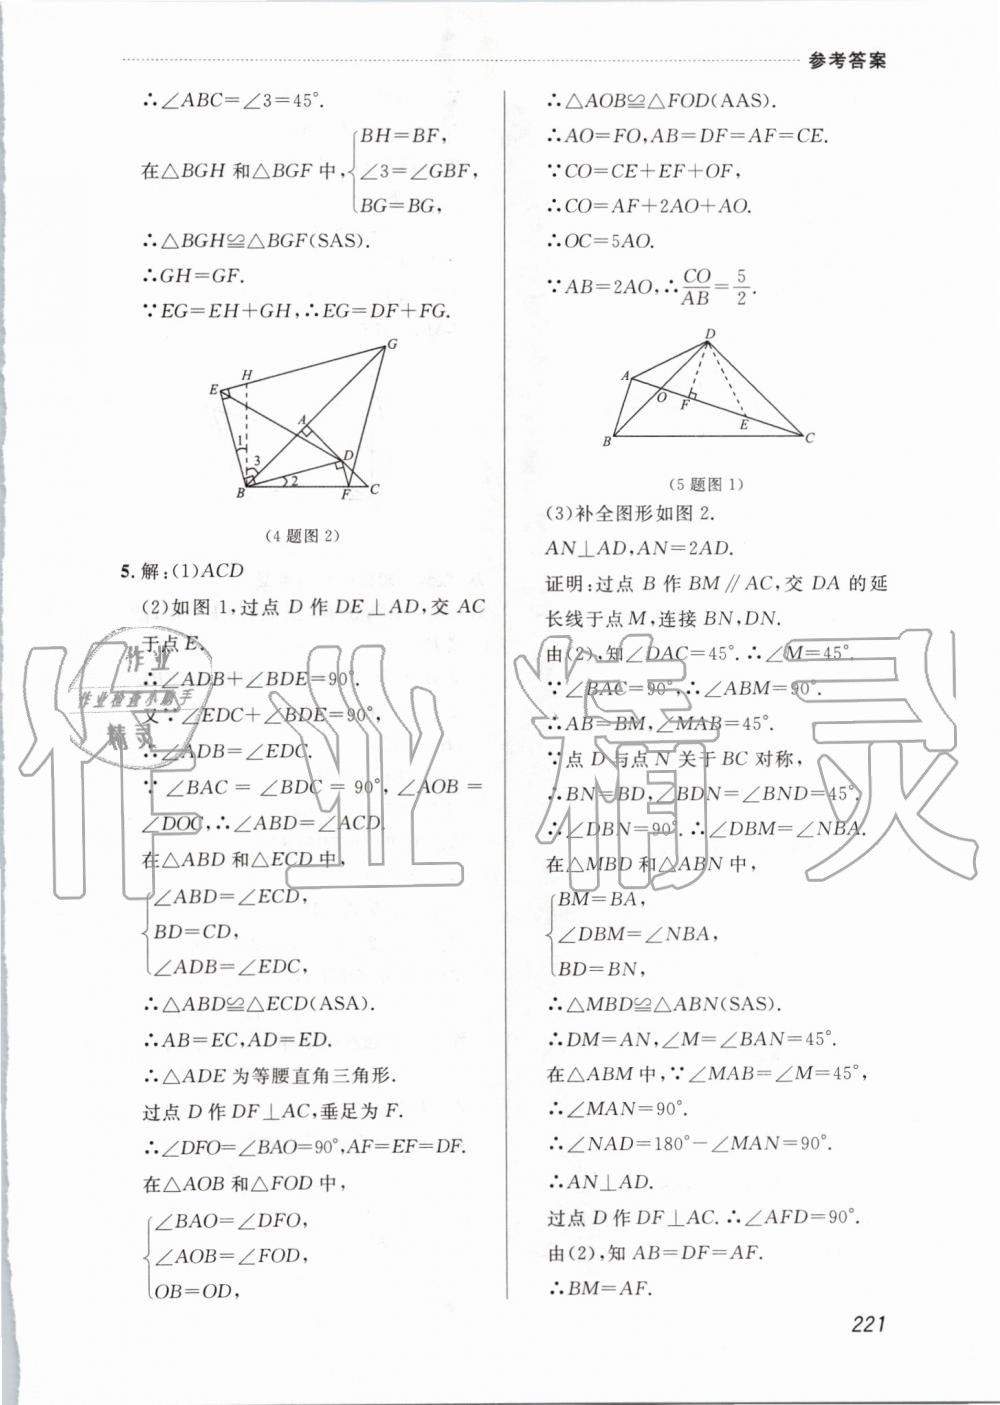 参考答案
∴∠ABC=∠3=45°.
在△BGH 和△BGF 中,
BH=BF,
∠3=∠GBF,
BG=BG,
∴△BGH≌△BGF(SAS).
∴GH=GF.
∵EG=EH+GH,∴EG=DF+FG.
G
H
E
A
1
3
D
2
B
F
C
(4题图2)
5.解:(1)ACD
(2)如图1,过点 D 作 DE⊥AD,交 AC
于点E.
∴∠ADB+∠BDE=90°.
又∵∠EDC+∠BDE=90°,
∴∠ADB=∠EDC.
∵∠BAC=∠BDC=90°,∠AOB=
∠DOC,∴∠ABD=∠ACD.
在△ABD 和△ECD 中,
∠ABD=∠ECD,
BD=CD,
∠ADB=∠EDC,
∴△ABD≌△ECD(ASA).
∴AB=EC,AD=ED.
∴△ADE 为等腰直角三角形.
过点 D 作 DF⊥AC,垂足为 F.
∴∠DFO=∠BAO=90°,AF=EF=DF.
在△AOB 和△FOD 中,
∠BAO=∠DFO,
∠AOB=∠FOD,
OB=OD,
∴△AOB≌△FOD(AAS).
∴AO=FO,AB=DF=AF=CE.
∵CO=CE+EF+OF,
∴CO=AF+2AO+AO.
∴OC=5AO.
∵AB=2AO,∴CO/AB=5/2.
D
A
O
F
E
B
C
(5题图1)
(3)补全图形如图 2.
AN⊥AD,AN=2AD.
证明:过点 B 作 BM∥AC,交 DA 的延
长线于点M,连接 BN,DN.
由(2),知∠DAC=45°.∴∠M=45°.
∵∠BAC=90°,∴∠ABM=90°.
∴AB=BM,∠MAB=45°.
∵点 D 与点 N 关于 BC 对称,
∴BN=BD,∠BDN=∠BND=45°.
∴∠DBN=90°.∴∠DBM=∠NBA.
在△MBD 和△ABN 中,
BM=BA,
∠DBM=∠NBA,
BD=BN,
∴△MBD≌△ABN(SAS).
∴DM=AN,∠M=∠BAN=45°.
在△ABM 中,∵∠MAB=∠M=45°,
∴∠MAN=90°.
∴∠NAD=180°−∠MAN=90°.
∴AN⊥AD.
过点 D 作 DF⊥AC.∴∠AFD=90°.
由(2),知 AB=DF=AF.
∴BM=AF.
221
作业精灵
作业
作业检查小助手
精灵